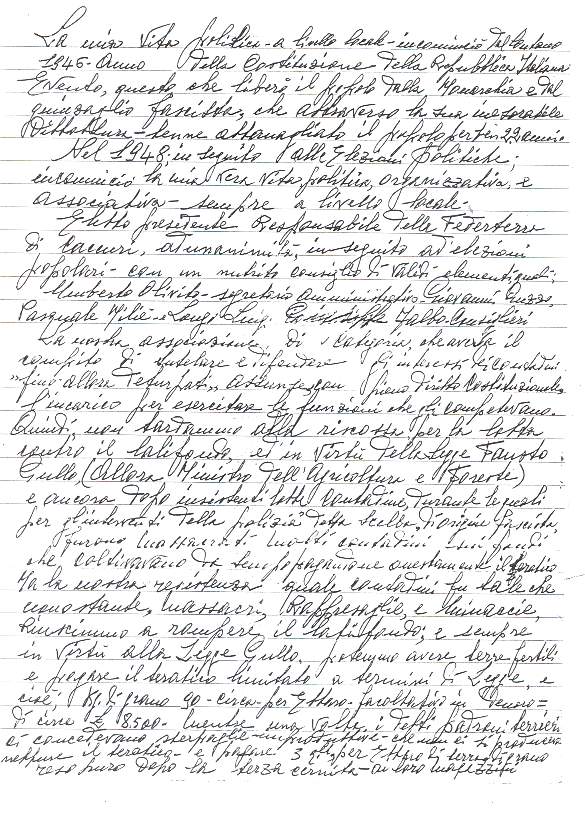 La mia vita politica - a livello locale - incominciò dal lontano
1946 - Anno della Costituzione della Repubblica Italiana
Evento, questo che liberò il popolo dalla Monarchia e dal
guinzaglio fascista, che attraverso la sua inesorabile
Dittatura - tenne attanagliato il popolo per ben
Nel 1948, in seguito alle Elezioni Politiche;
incominciò la mia vera vita politica, organizzativa, e
associativa - sempre a livello locale -
Eletto presidente Responsabile della Federterra
di Caccuri, ad unanimità, in seguito ad elezioni
popolari - con un nutrito consiglio di validi elementi quali:
Umberto Oliviti - segretario amministrativo - Giovanni
Pasquale e Luigi Consiglieri
La nostra associazione, di categoria, che aveva il
compito di tutelare e difendere gli interessi dei contadini
fino allora deturpati, assunse, con pieno diritto Costituzionale
l'incarico per esercitare le funzioni che gli competevano -
Quindi, non tardammo alla riscossa per la lotta
contro il latifondo, ed in virtù della legge Fausto
Gullo, (Allora Ministro dell'Agricoltura e Foreste)
e ancora dopo insistenti lotte contadine, durante le quali
per gl'interventi della polizia detta Scelba, d'origine fascista,
furono massacrati molti contadini sui fondi
che coltivavano da tempo pagandone onestamente il teratico
Ma la nostra resistenza quale contadini fu tale che
nonostante, massacri, Rappresaglie, e minaccie,
Riuscimmo a rompere il latifondo; e sempre
in virtù alla Legge Gullo. potemmo avere terre fertili
e pagare il teratico limitato a termini di Legge, e
cioè, Kg. di grano 90 - circa - per Ettaro - facoltativo in denaro =
di circa £ 8500 - mentre una volta i detti padroni terrieri
ci concedevano sterpaglie - improduttive - che non ci si produceva
neppure il teratico - e pagare 3 qt. per Ettaro di terra di grano
reso puro dopo la terza cernita - ai loro magazzini